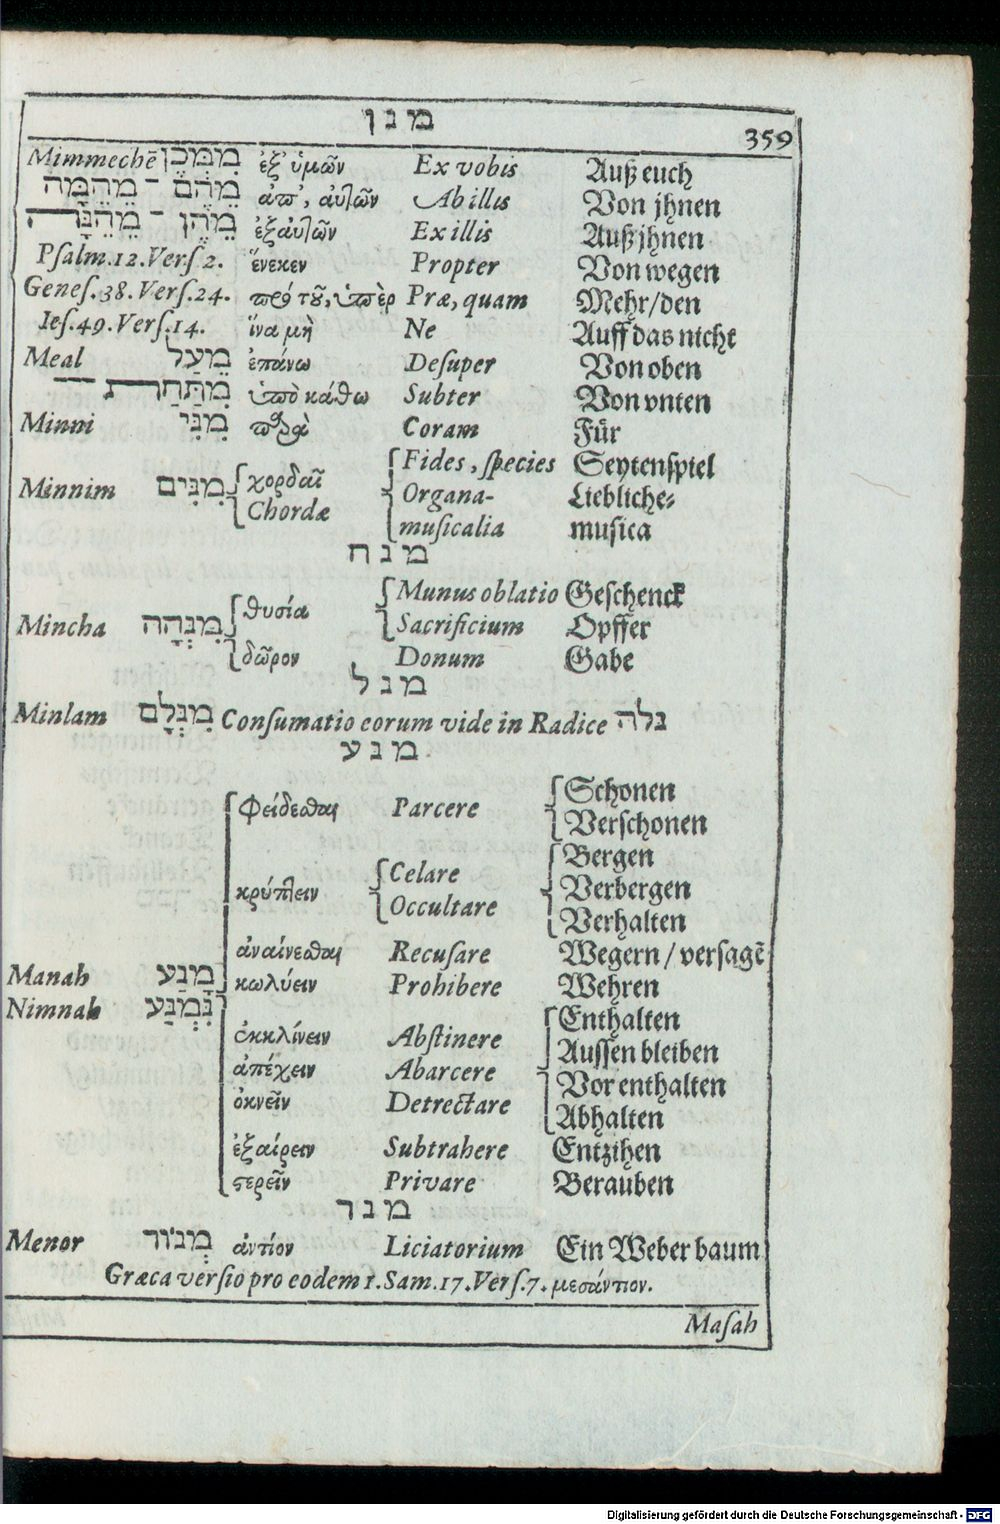 מנן
359
Mimmechē מִמְּכֶן ἐξ ὑμῶν Ex vobis Auß euch
מֵהֶם - מֵהֵמָּה ἀπ', αὐτῶν Ab illis Von jhnen
מֵהֶן - מֵהֵנָּה ἐξαὐτῶν Ex illis Auß jhnen
Pſalm.12.Verſ 2. ἕνεκεν Propter Von wegen
Geneſ.38.Verſ.24. πρό τοῦ, ὑπὲρ Præ, quam Mehr/den
Ieſ.49.Verſ.14. ἵνα μὴ Ne Auff das nicht
Meal מֵעַל ἐπάνω Deſuper Von oben
מִתַּחַת ὑπὸ κάθω Subter Von vnten
Minni מִנִּי παρὰ Coram Für
Minnim מִנִּים χορδαῖ Chordæ Fides, ſpecies Seytenſpiel
Organa- Liebliche⸗
muſicalia muſica
מנח
Mincha מִנְּחָה θυσία Munus oblatio Geſchenck
Sacrificium Opffer
δῶρον Donum Gabe
מנל
Minlam מִנְלָם Conſumatio eorum vide in Radice נלה
מנע
φείδεσθαι Parcere Schonen
Verſchonen
κρύπτειν Celare Occultare Bergen
Verbergen
Verhalten
ἀναίνεσθαι Recuſare Wegern / verſagē
Manah מָנַע κωλύειν Prohibere Wehren
Nimnah נִמְנַע
ἐκκλίνειν Abſtinere Enthalten
Auſſen bleiben
ἀπέχειν Abarcere Vor enthalten
ὀκνεῖν Detrectare Abhalten
ἐξαίρειν Subtrahere Entzihen
ςερεῖν Privare Berauben
מנר
Menor מְנוֹר ἀντίον Liciatorium Ein Weber baum
Græca verſio pro eodem 1.Sam.17.Verſ.7. μεσάντιον.
Maſah
Digitalisierung gefördert durch die Deutsche Forschungsgemeinschaft - DFG